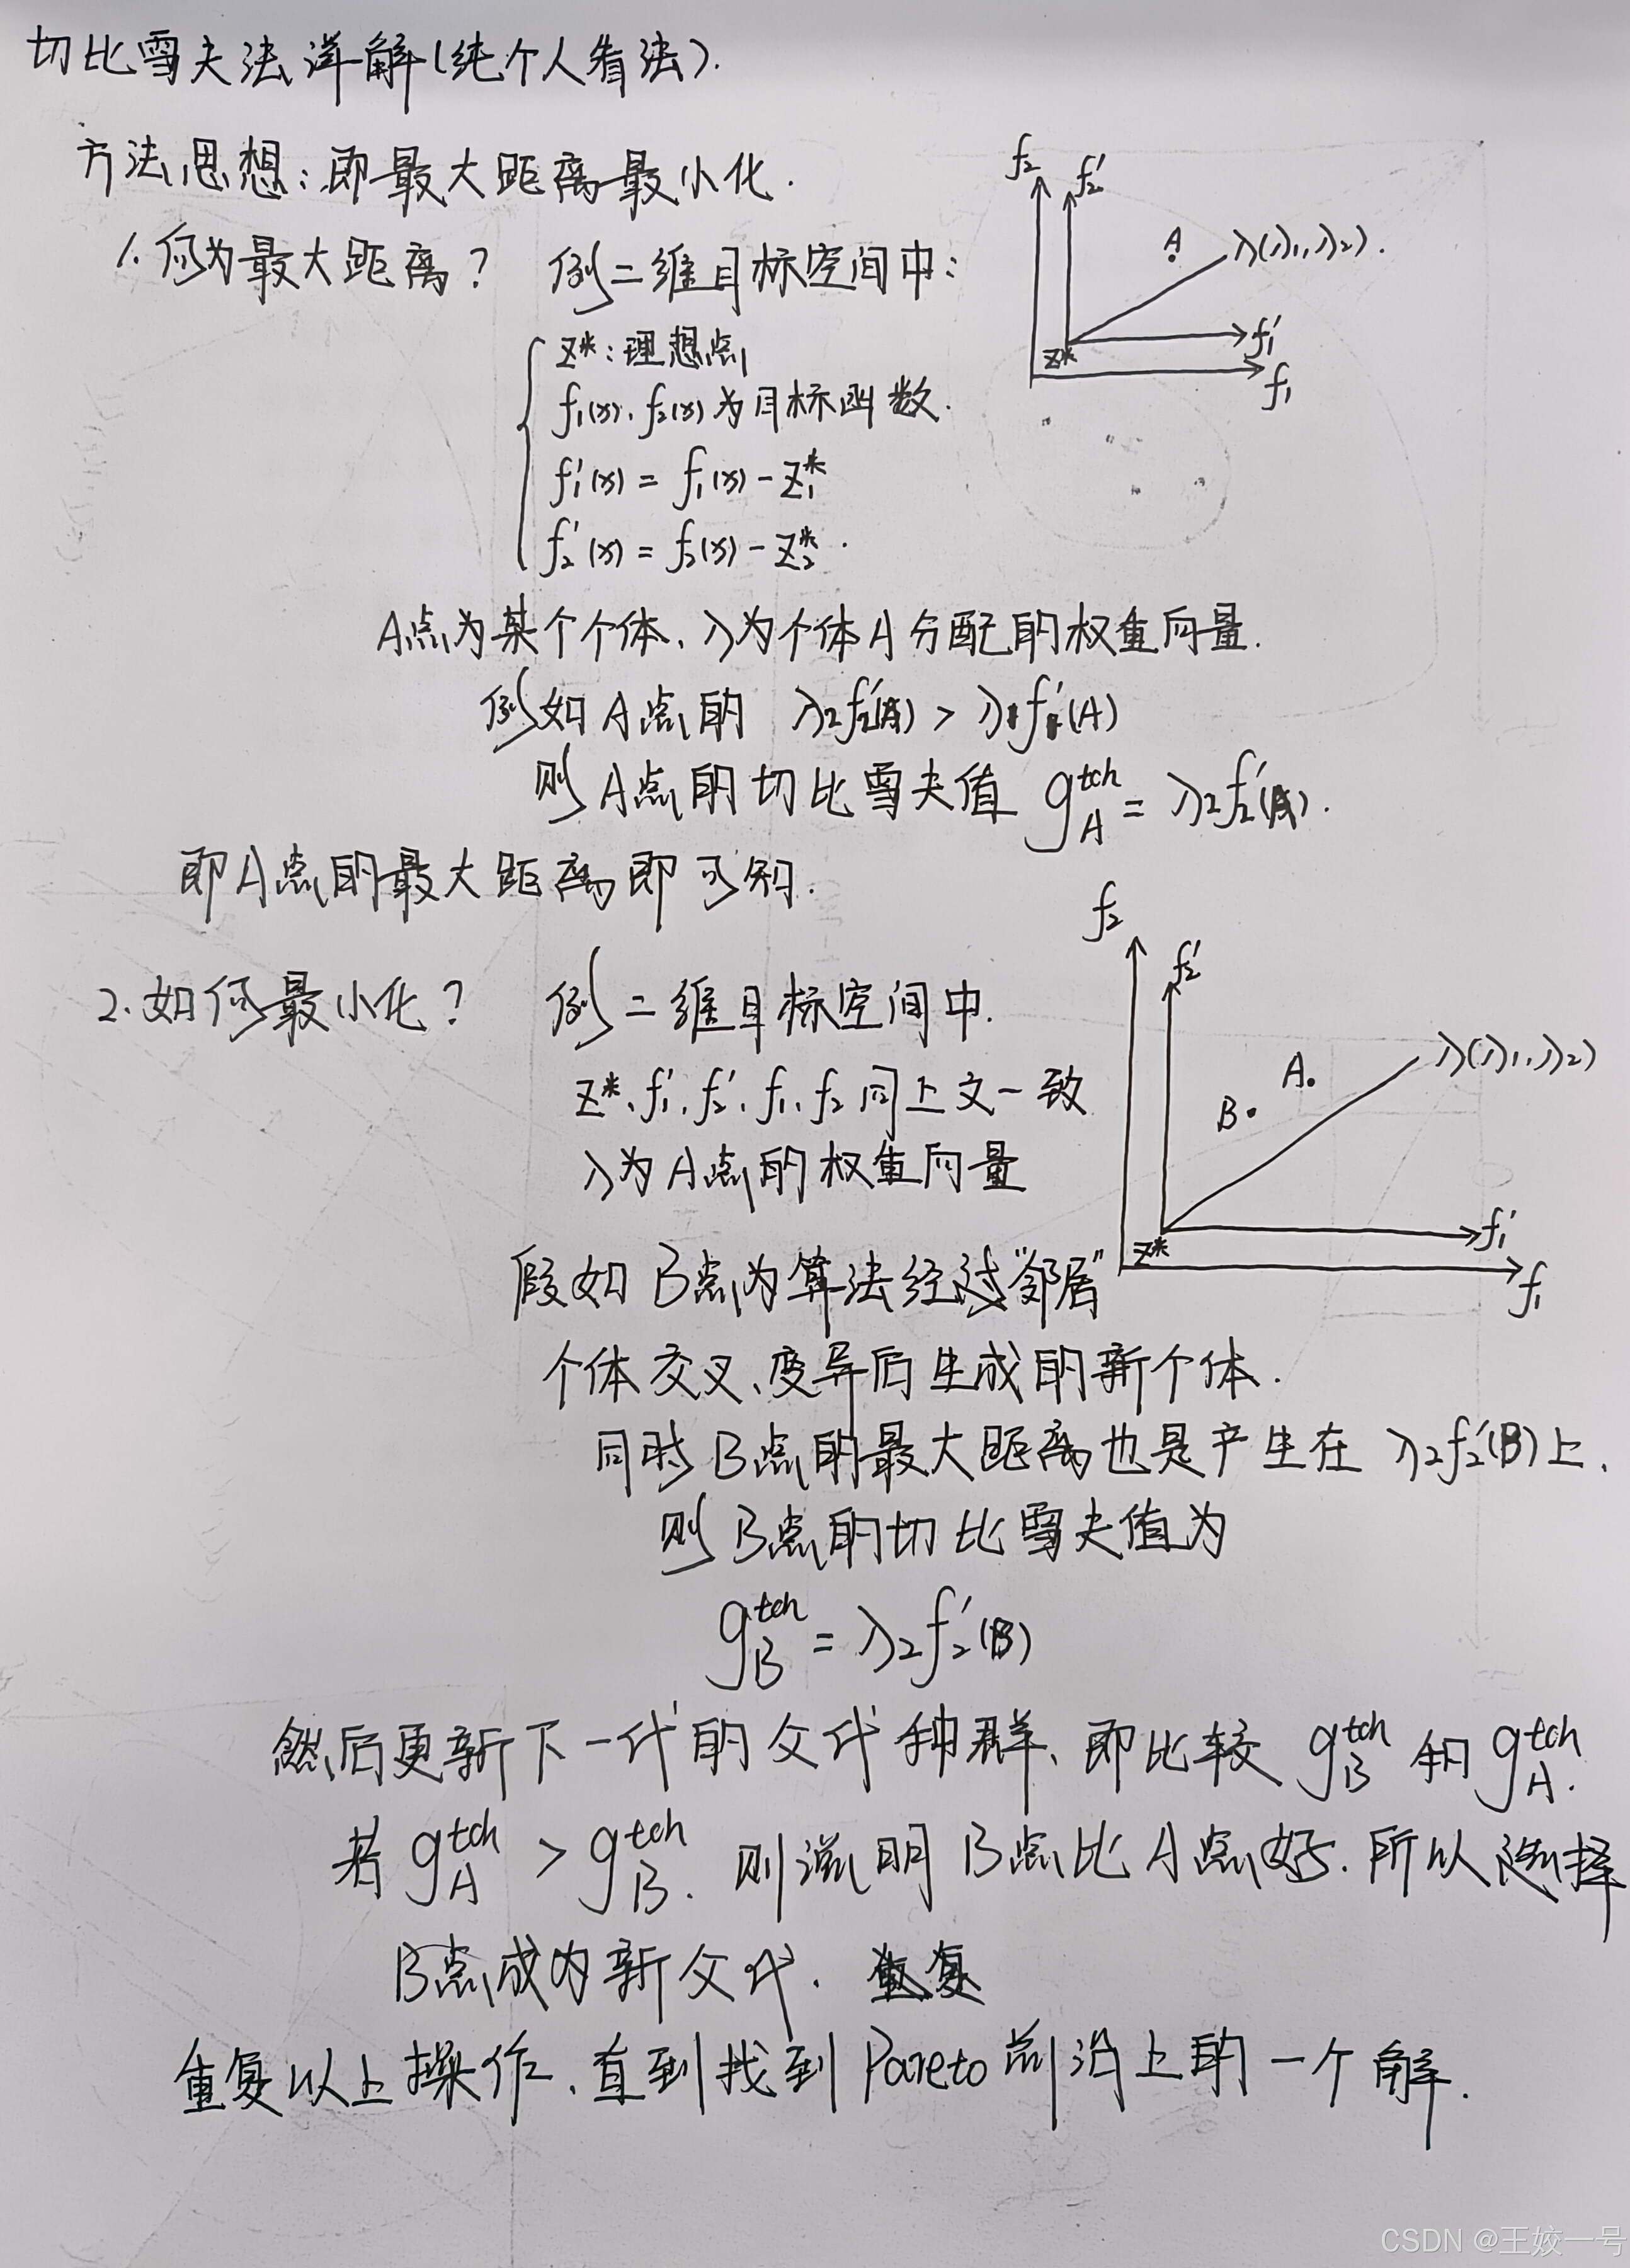 切比雪夫法详解(纯个人看法).
方法思想:即最大距离最小化.
f₂ f₂'
A λ(λ₁,λ₂).
z* f₁'
f₁
1.何为最大距离? 例二维目标空间中:
z*:理想点
f₁(x)、f₂(x)为目标函数.
f₁'(x) = f₁(x) - z₁*
f₂'(x) = f₂(x) - z₂*.
A点为某个个体、λ为个体A分配的权重向量.
例如A点的 λ₂f₂'(A) > λ₁f₁'(A)
则A点的切比雪夫值 g_A^tch = λ₂f₂'(A).
即A点的最大距离即可知.
f₂
f₂'
2.如何最小化? 例二维目标空间中.
A. λ(λ₁,λ₂)
z*、f₁'、f₂'、f₁、f₂同上文一致
B.
λ为A点的权重向量
z* f₁'
f₁
假如B点为算法经过“邻居”
个体交叉、变异后生成的新个体.
同时B点的最大距离也是产生在 λ₂f₂'(B)上、
则B点的切比雪夫值为
g_B^tch = λ₂f₂'(B)
然后更新下一代的父代种群、即比较 g_B^tch 和 g_A^tch.
若 g_A^tch > g_B^tch. 则说明B点比A点好.所以选择
B点成为新父代. 重复
重复以上操作、直到找到Pareto前沿上的一个解.
CSDN @王姣一号